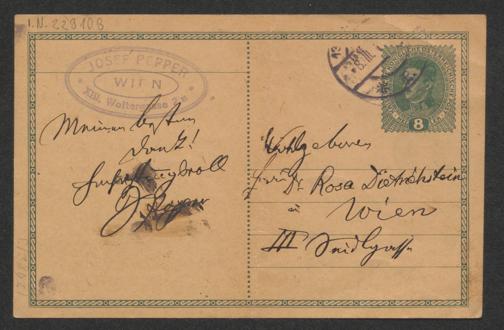 I.N. 229108
JOSEF PEPPER
WIEN
XIII. Woltergasse
Meinen besten
Dank!
Hochachtungsvoll
8
Wohlgeboren
Dr. Rosa Dietrichstein
in
Wien
III Seidlgasse